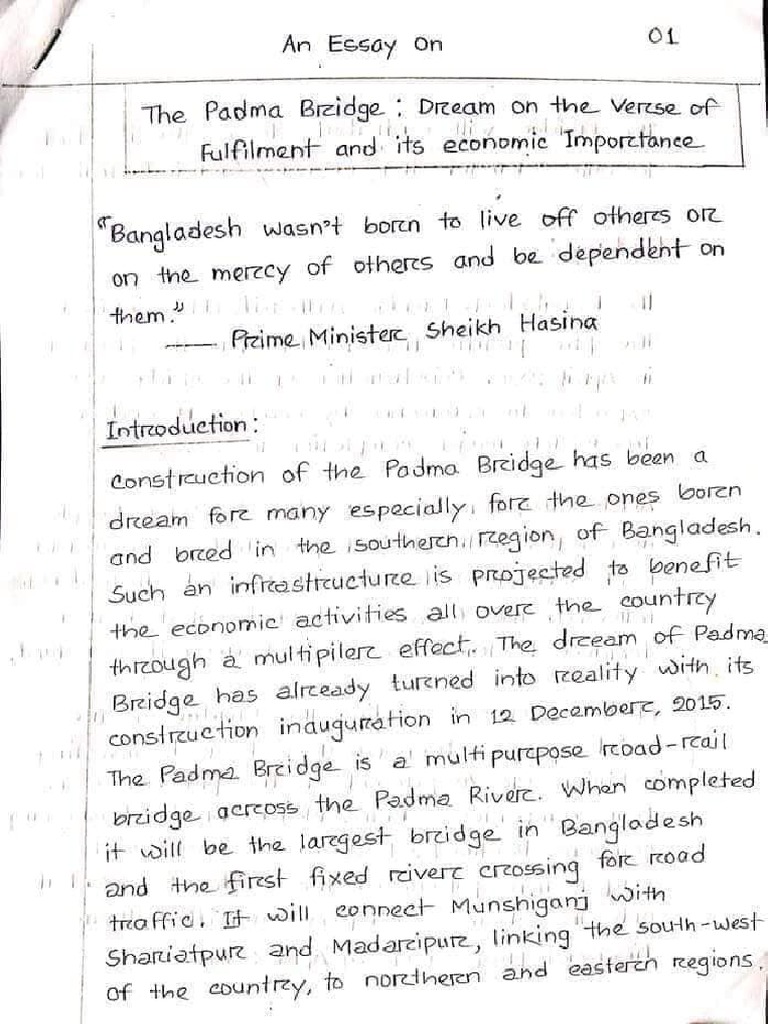 An Essay On
01
The Padma Bridge : Dream on the Verse of
Fulfilment and its economic Importance
"Bangladesh wasn't born to live off others or
on the mercy of others and be dependent on
them."
—— Prime Minister Sheikh Hasina
Introduction :
Construction of the Padma Bridge has been a
dream for many especially, for the ones born
and bred in the southern region, of Bangladesh.
Such an infrastructure is projected to benefit
the economic activities all over the country
through a multipiler effect. The dream of Padma
Bridge has already turned into reality with its
construction inauguration in 12 December, 2015.
The Padma Bridge is a multipurpose road-rail
bridge across the Padma River. When completed
it will be the largest bridge in Bangladesh
and the first fixed river crossing for road
traffic. It will connect Munshiganj with
Shariatpur and Madaripur, linking the south-west
of the country, to northern and eastern regions.